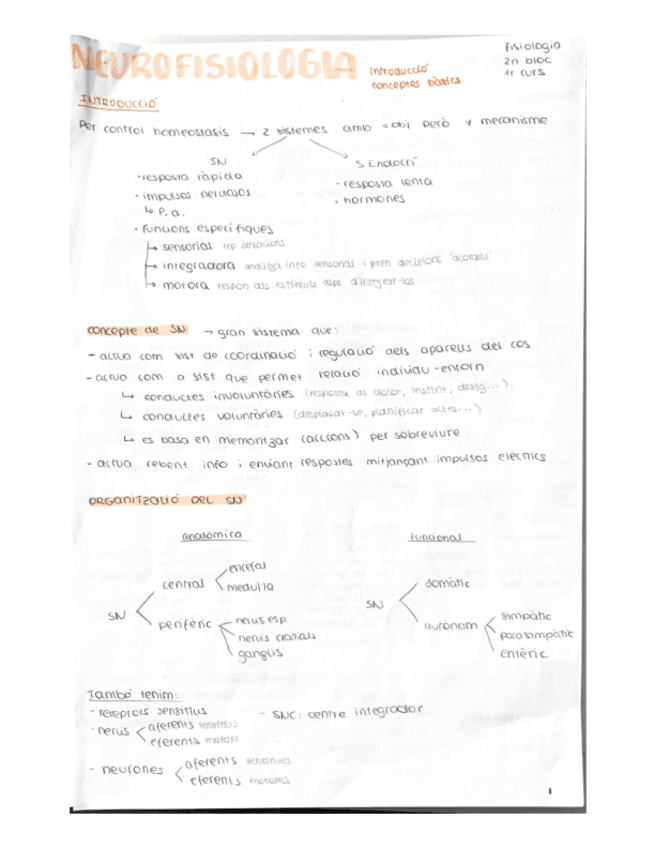 NEUROFISIOLOGIA
Introducció
conceptes bàsics
fisiologia
2n bloc
1r curs
INTRODUCCIÓ
Per control homeostasis → 2 sistemes amb = obj però ≠ mecanisme
SN
· resposta ràpida
· impulsos nerviosos
↳ P.a.
· funcions específiques
↳ sensorial rep sensacions
↳ integradora analitza info sensorial i pren decisions "acordes"
↳ motora respon als estímuls desp d'integrar-los
S Endocrí
· resposta lenta
· hormones
concepte de SN → gran sistema que:
- actua com sist de coordinació i regulació dels aparells del cos
- actua com a sist que permet relació individu-entorn
↳ conductes involuntàries (resposta al dolor, instint, desig...)
↳ conductes voluntàries (desplaçar-se, planificar actes...)
↳ es basa en memoritzar (accions) per sobreviure
- actua rebent info i enviant respostes mitjançant impulsos elèctrics
ORGANITZACIÓ DEL SN
anatòmica
SN
central
encefal
medul·la
perifèric
nervis esp
nervis cranials
ganglis
funcional
SN
somàtic
autònom
simpàtic
parasimpàtic
entèric
També tenim:
- receptors sensitius
- nervis
aferents sensitius
eferents motors
- neurones
aferents sensitives
eferents motores
- SNC: centre integrador
1